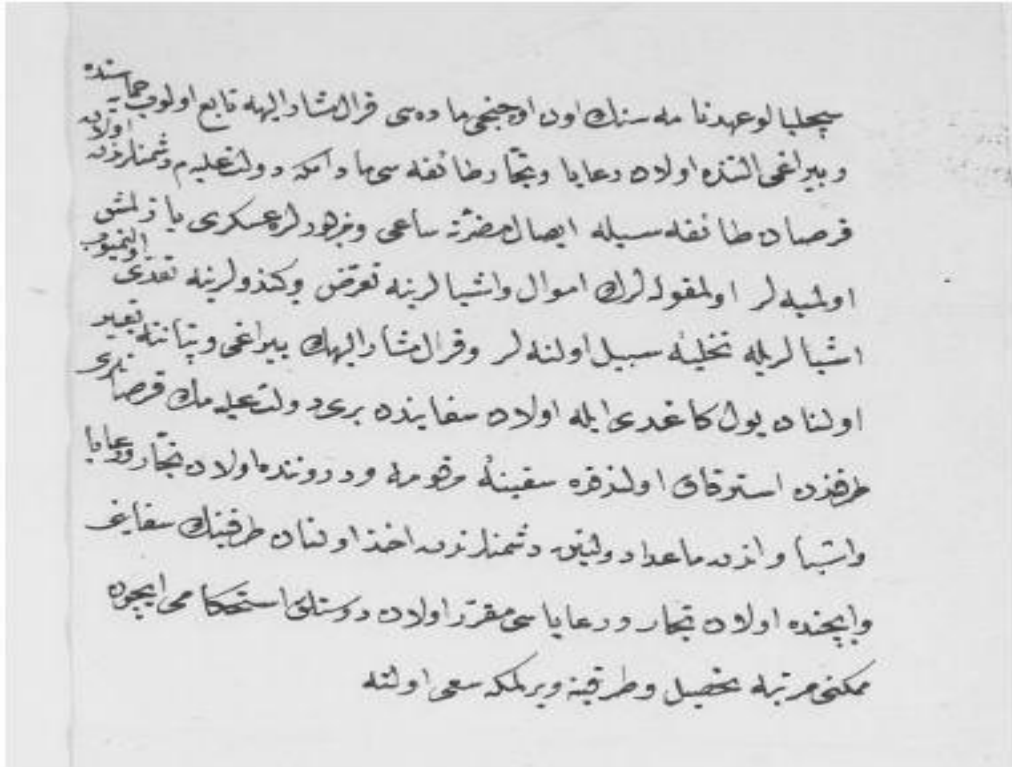 سچليا لو عهدنامه سنك اون اوچنجى ماده سى قرال مشار اليهه تابع اولوب حمايه سنده
و بيراغى التنده اولان رعايا و تجار طائفه سى مادامكه دولت عليه م دشمنلرندن اولان
قرصان طائفه سيله ايصال مضرته ساعى و مزبورلره عسكرى يازلمش
اولميه لر اولمقوله لرك اموال و اشيالرينه تعرض و كندولرينه تعدى اولنميوب
اشيالريله تخليۀ سبيل اولنه لر و قرال مشار اليهك بيراغى و پتانته تعبير
اولنان يول كاغدى ايله اولان سفايندن برى دولت عليه مك قرصانلرى
طرفندن استرقاق اولندقده سفينۀ مرقومه و دروننده اولان تجار و رعايا
و اشيا و اندن ماعدا دولتين دشمنلرندن اخذ اولنان طرفينك سفاينى
و ايچنده اولان تجار و رعاياسى مقرر اولان دوستلق استحكامى ايچون
ممكن مرتبه تحصيل و طرفينه ويرلمكه سعى اولنه